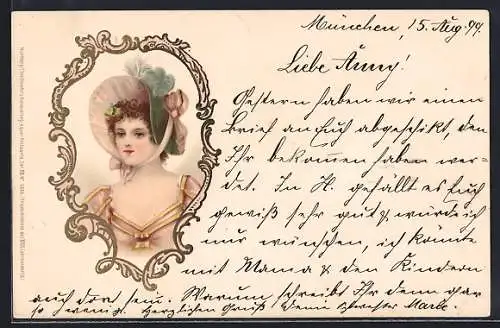 München, 15. Aug. 99.
Liebe Anny!
Gestern haben wir einen
Brief an Euch abgeschikt, den
Ihr bekommen haben wer-
det. In H. gefällt es Euch
gewiß sehr gut & würde ich
mir wünschen, ich könnte
mit Mama & den Kindern
auch dort sein. Warum schreibt Ihr denn gar
so wenig. Herzlichen Gruß Deine Schwester